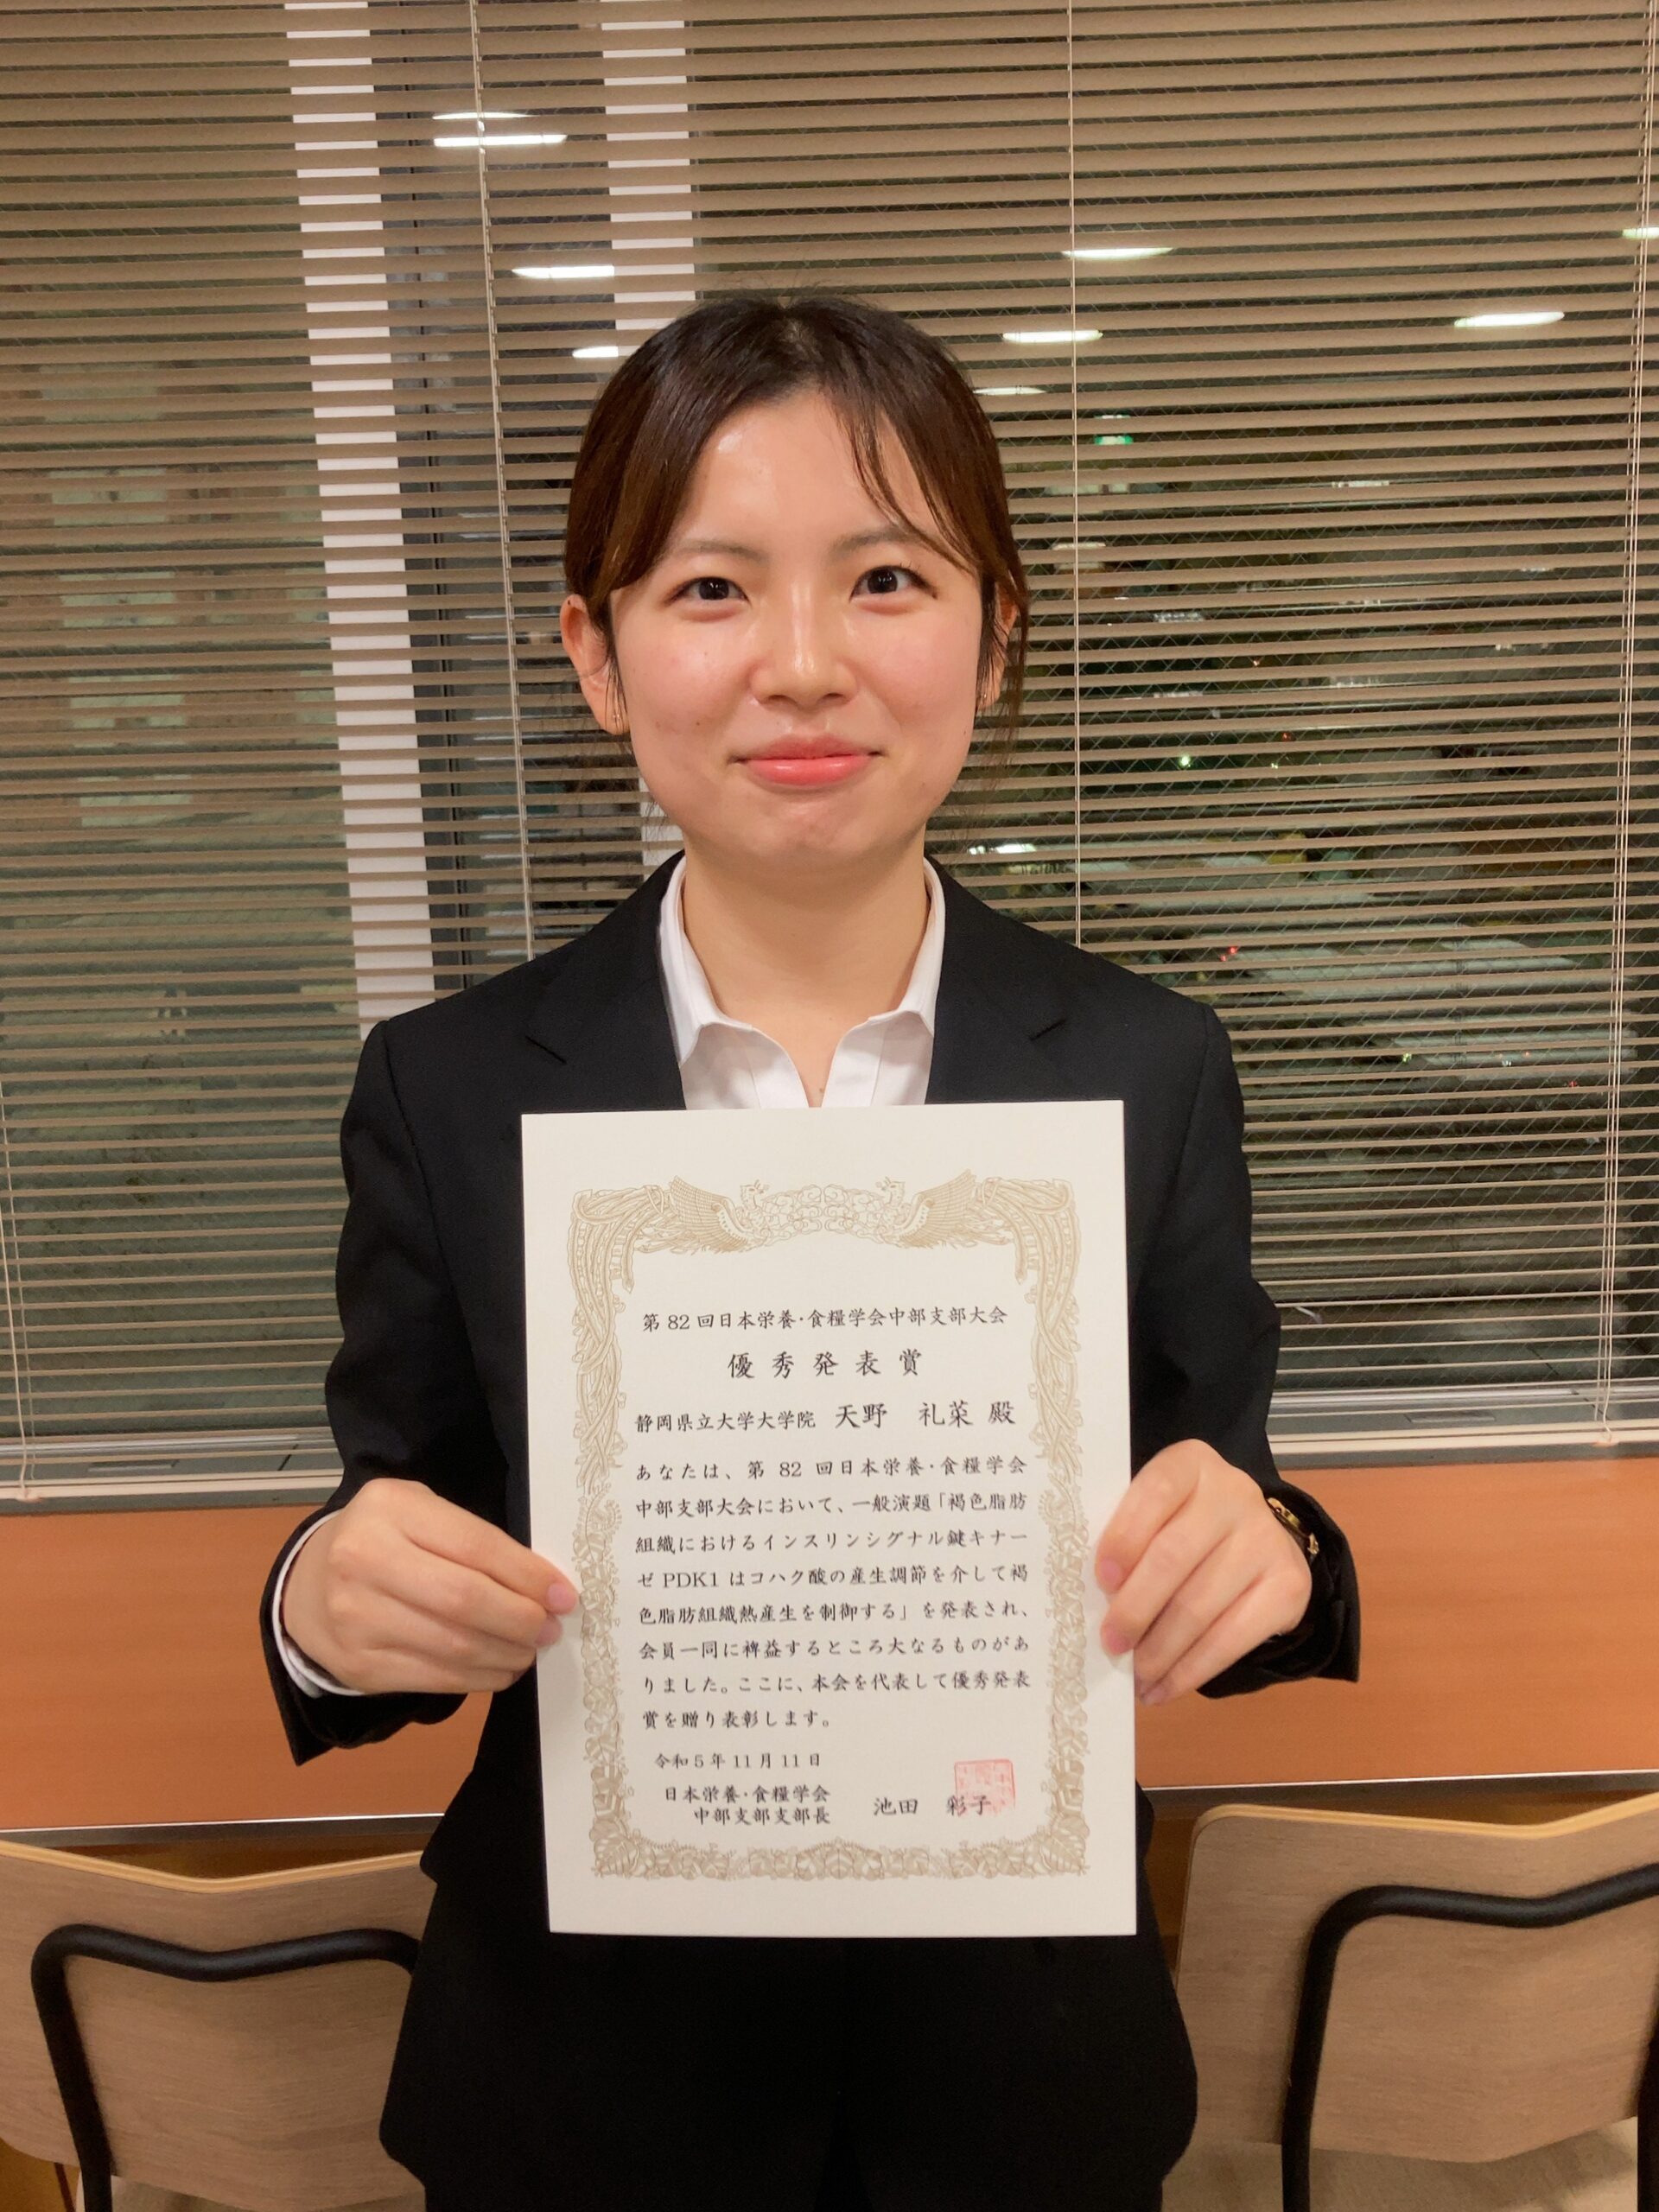 第 82 回日本栄養・食糧学会中部支部大会
優秀発表賞
静岡県立大学大学院 天野 礼菜 殿
あなたは、第 82 回日本栄養・食糧学会
中部支部大会において、一般演題「褐色脂肪
組織におけるインスリンシグナル鍵キナー
ゼ PDK1 はコハク酸の産生調節を介して褐
色脂肪組織熱産生を制御する」を発表され、
会員一同に裨益するところ大なるものがあ
りました。ここに、本会を代表して優秀発表
賞を贈り表彰します。
令和 5 年 11 月 11 日
日本栄養・食糧学会
中部支部支部長 池田 彩子